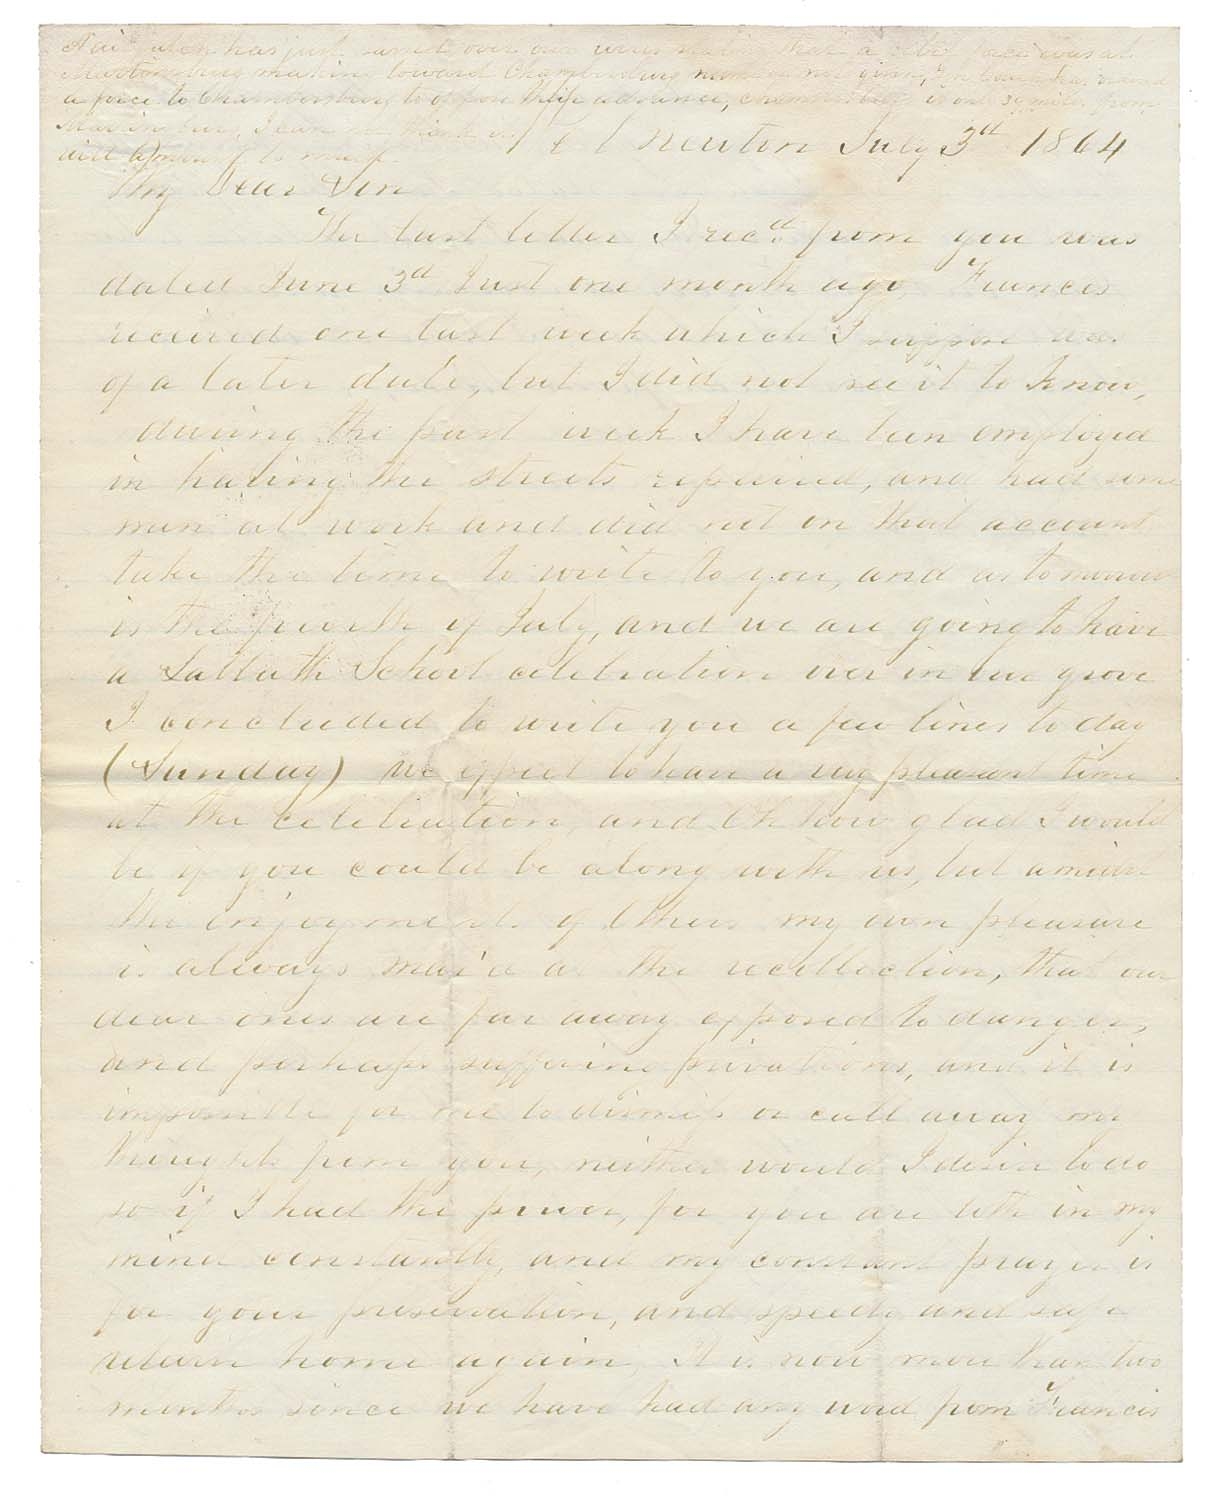 has just over our wires that a force was at
Martinsburg making toward Chambersburg number not given,
a force to Chambersburg to oppose their advance, Chambersburg is only miles from
Martinsburg, I can not think
will amount to much.
Newton July 3rd 1864
My Dear Son
The last letter I recd. from you was
dated June 3rd Just one month ago, Frances
received one last week which I suppose was
of a later date, but I did not see it to know,
during the past week I have been employed
in having the streets repaired, and had some
men at work and did not on that account
take the time to write to you, and as tomorrow
is the fourth of July, and we are going to have
a Sabbath School celebration over in our grove
I concluded to write you a few lines to day
(Sunday) we expect to have a very pleasant time
at the celebration, and Oh how glad I would
be if you could be along with us, but amidst
the enjoyments of others my own pleasure
is always mar'd at the recollection, that our
dear ones are far away exposed to danger,
and perhaps suffering privations, and it is
impossible for me to dismiss or call away my
thoughts from you, neither would I desire to do
so if I had the power, for you are both in my
mind constantly, and my constant prayer is
for your preservation, and speedy and safe
return home again, It is now more than two
months since we have had any word from Francis